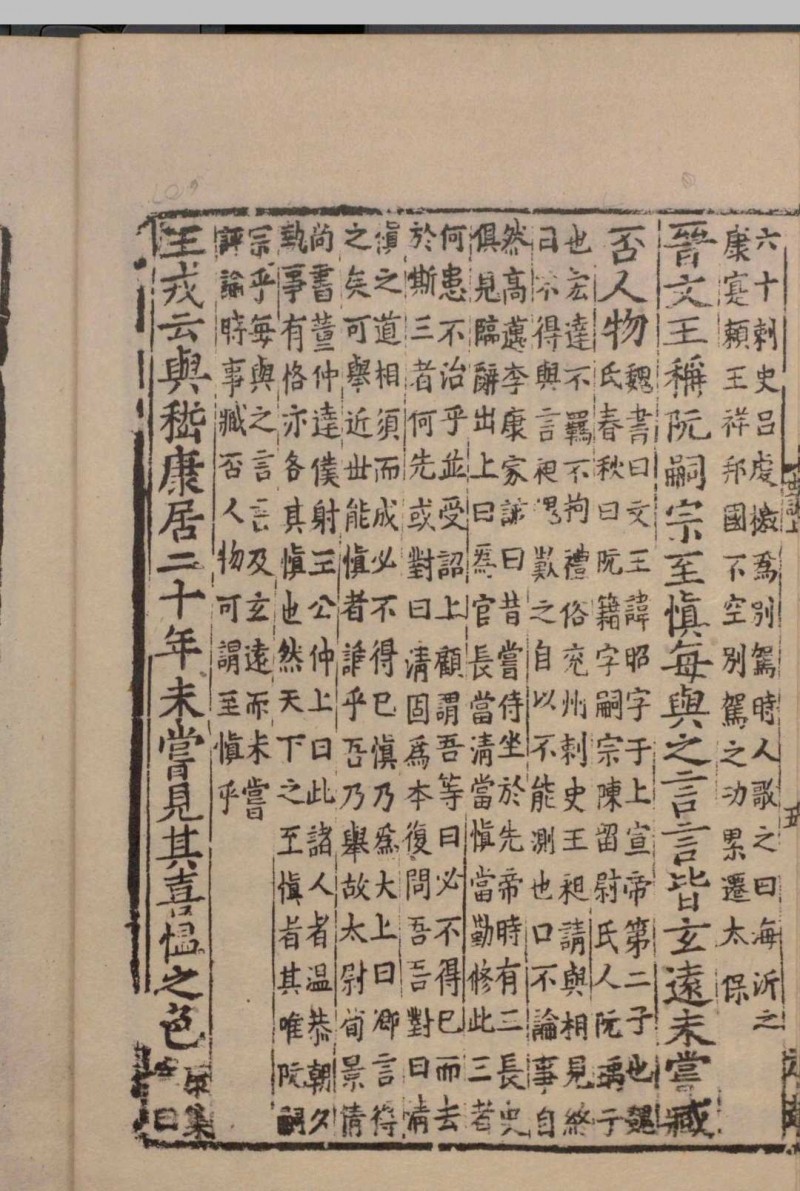 六十刺史呂虔檄爲別駕時人歌之曰海沂之
康寔賴王祥邦國不空別駕之功累遷太保
晉文王稱阮嗣宗至慎每與之言言皆玄遠未嘗臧
否人物
魏書曰文王諱昭字子上宣帝第二子也魏
氏春秋曰阮籍字嗣宗陳留尉氏人阮瑀子
也宏達不羈不拘禮俗兖州刺史王昶請與相見終
日不得與言昶愧歎之自以不能測也口不論事自
然高邁李康家誡曰昔嘗侍坐於先帝時有三長史
俱見臨辭出上曰爲官長當清當慎當勤修此三者
何患不治乎並受詔上顧謂吾等曰必不得已而去
於斯三者何先或對曰清固爲本復問吾吾對曰清
慎之道相須而成必不得已慎乃爲大上曰卿言得
之矣可舉近世能慎者誰乎吾乃舉故太尉荀景倩
尚書董仲達僕射王公仲上曰此諸人者温恭朝夕
執事有恪亦各其慎也然天下之至慎者其唯阮嗣
宗乎每與之言言及玄遠而未嘗
評論時事臧否人物可謂至慎乎
王戎云與嵇康居二十年未嘗見其喜愠之色
康集
曰